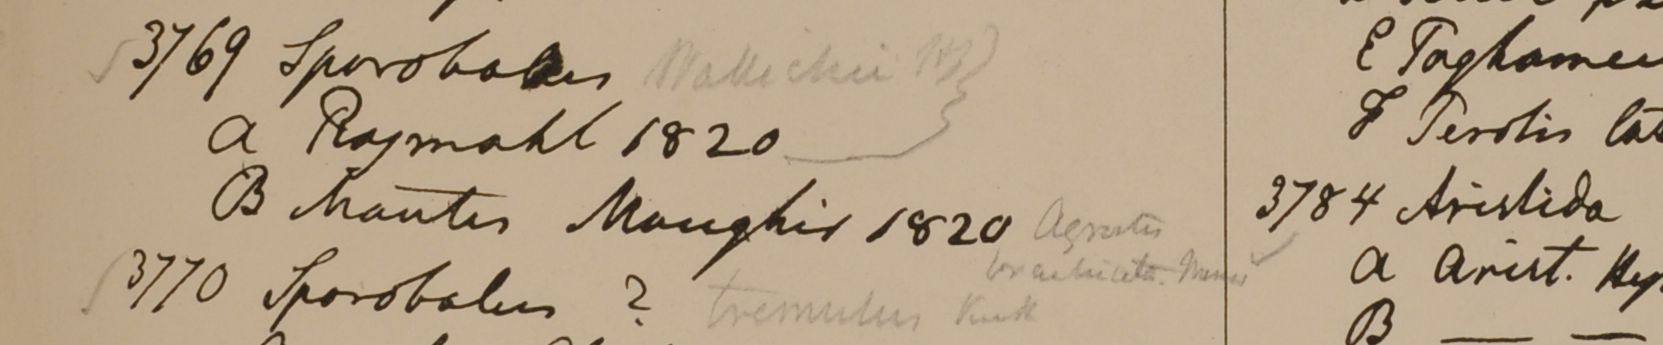 3769 Sporobolus Wallichii
a Rajmahl 1820
B Montes Monghir 1820 Agrostis
3770 Sporobolus ? tremulus Kunth
E Taghamen
F Perotis lat
3784 Aristida
a Arist. Hys
B — —